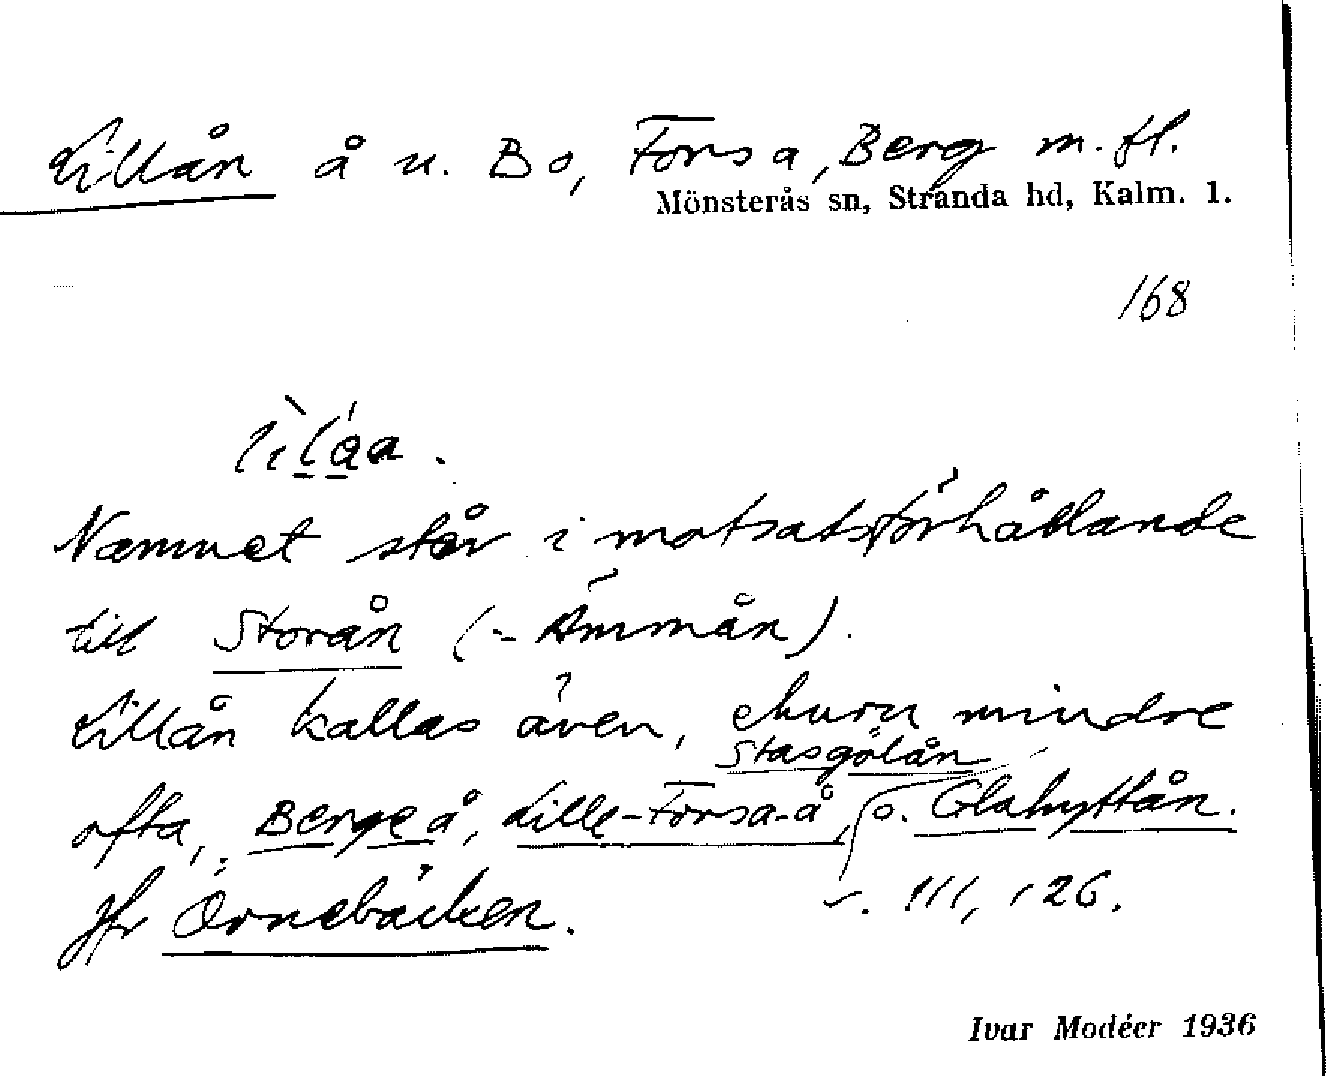 Lillån å u. Bo, Forsa, Berg m. fl.
Mönsterås sn, Stranda hd, Kalm. l.
168
Namnet står i motsatsförhållande
till Storån (= Åmmån).
Lillån kallas även, ehuru mindre
Stasgölån
ofta, Bergeå, Lille-Forsa-å, o. Glahyttån.
Jfr Örnebäcken.
s. III, 126.
Ivar Modéer 1936